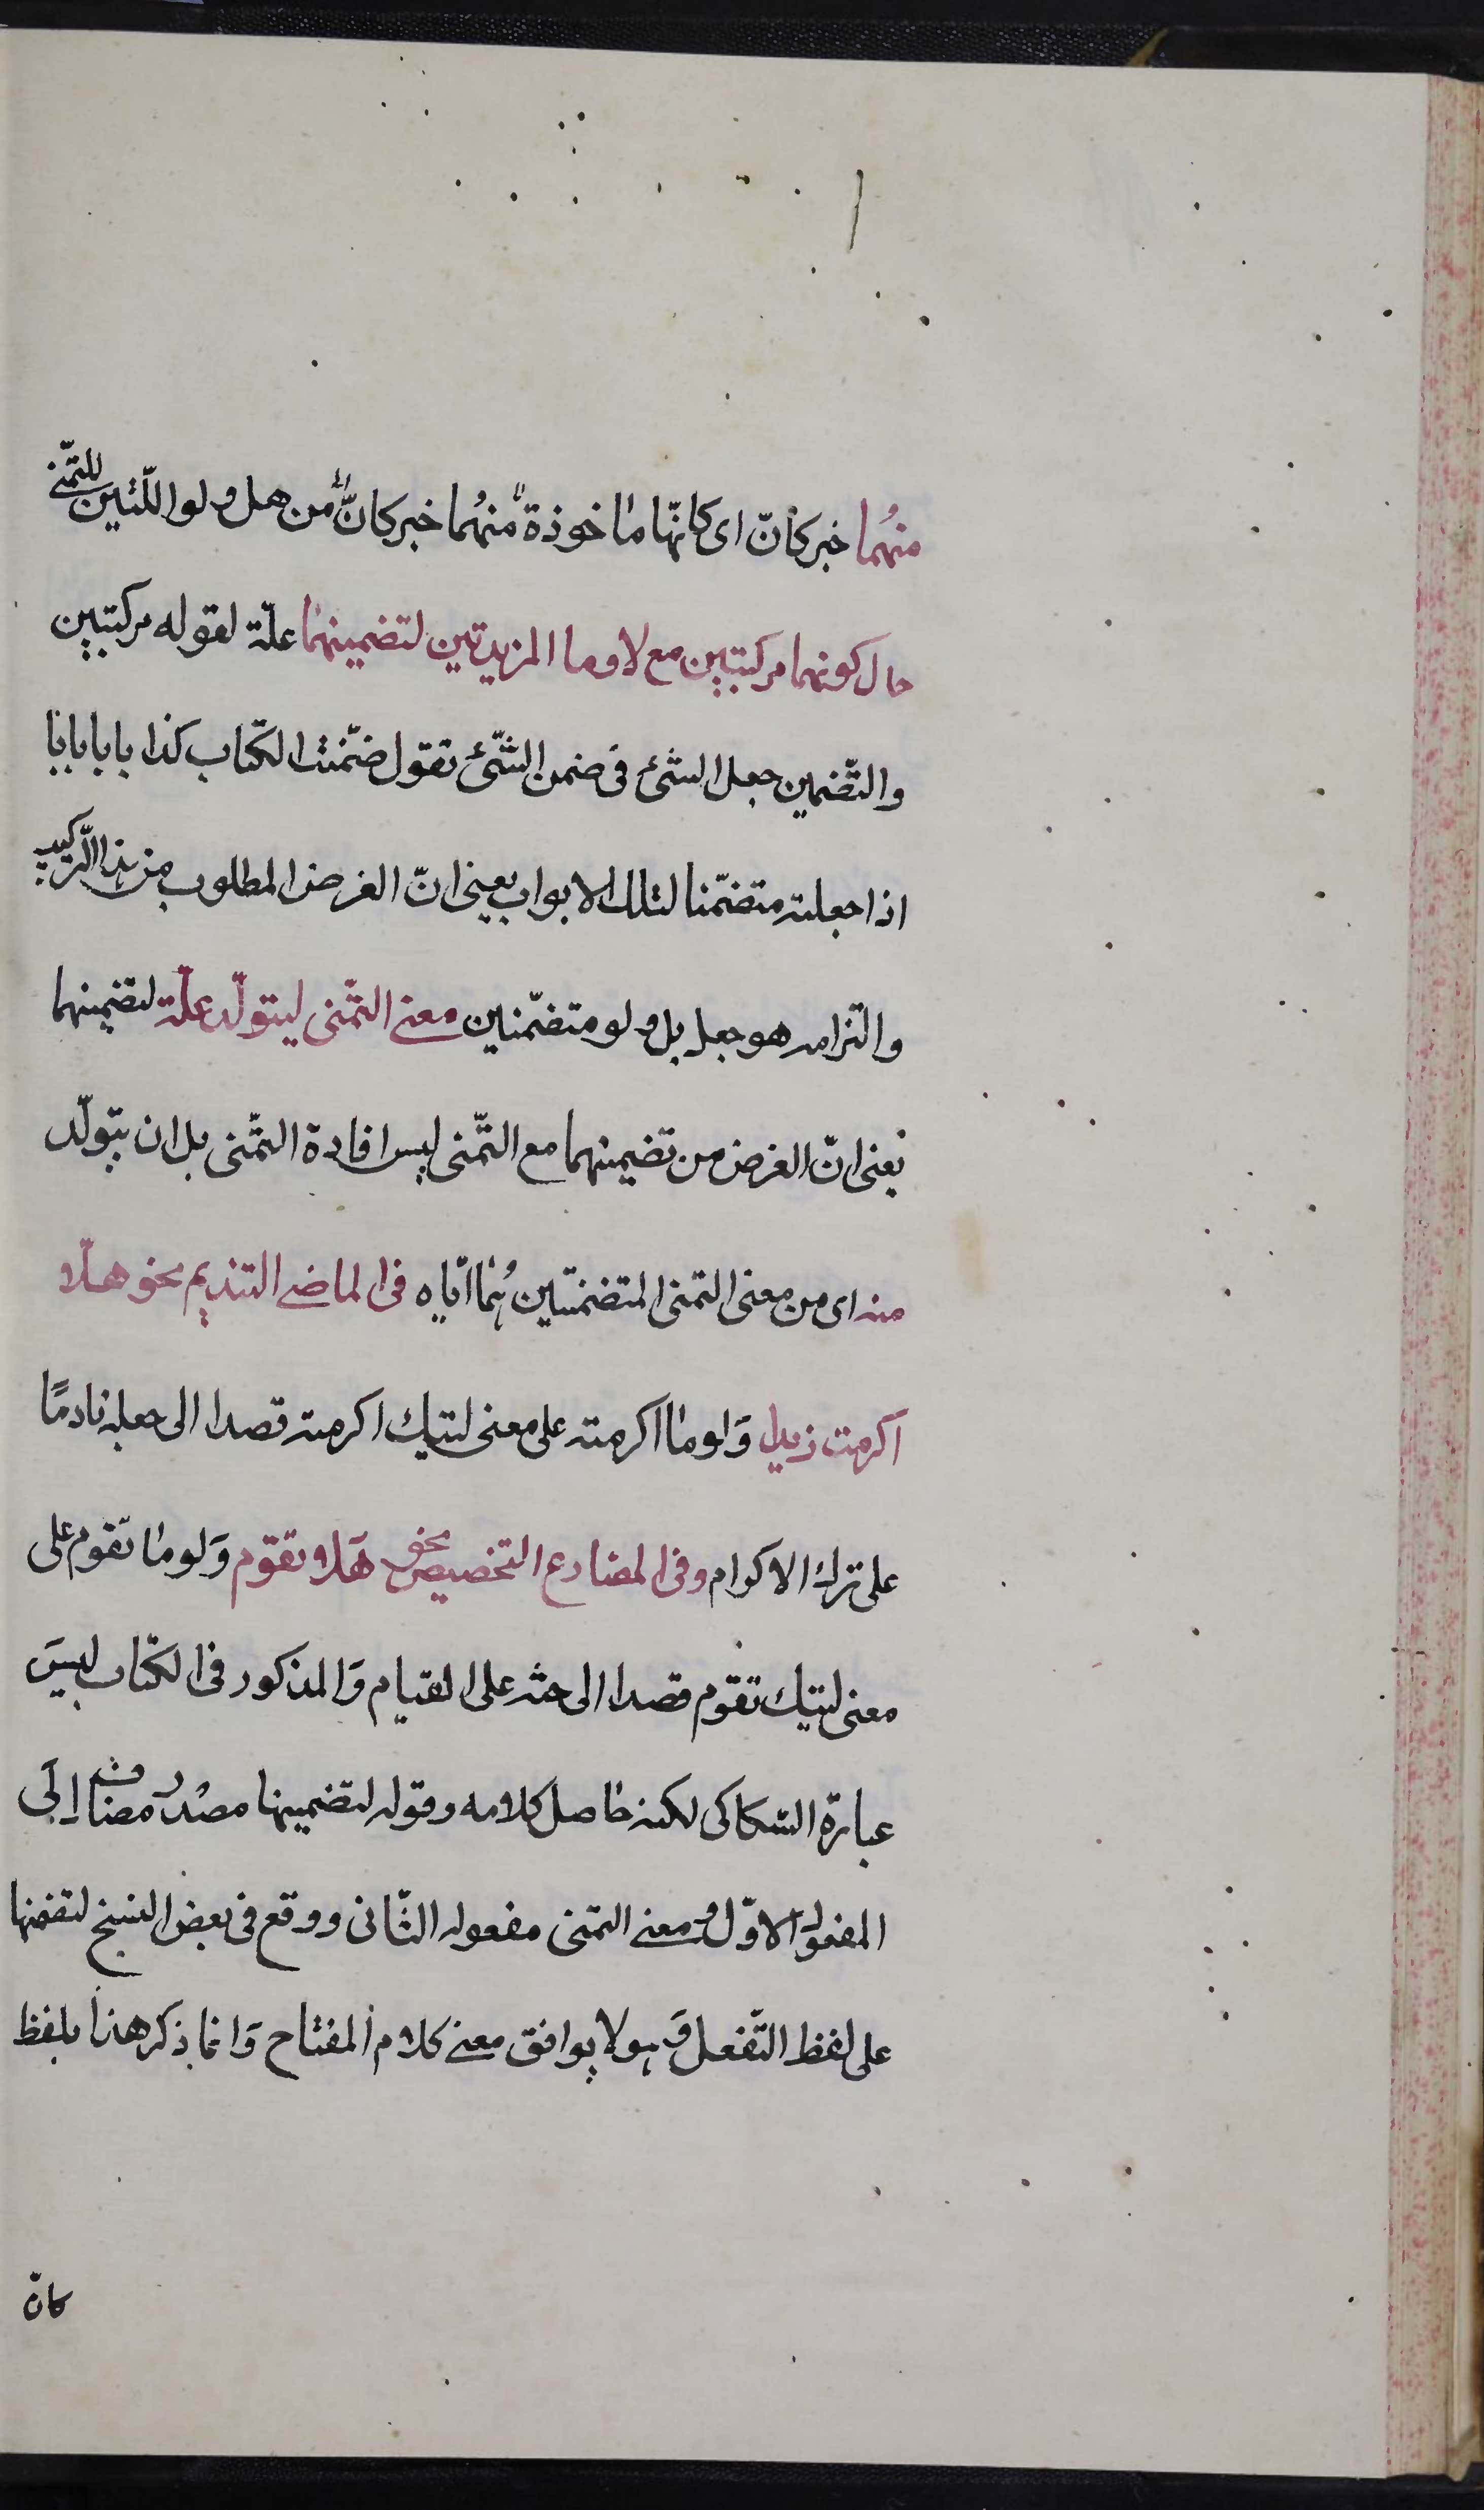 منهُما خبر كأنّ اى كانّها ماخوذة منهُما خبر كانّ من هل ولو اللّتين للتّمنّى
حال كونهما مركبتين مع لا وما المزيدتين لتضمينهما علّة لقوله مركبتين
والتّضمين جعل الشئ فى ضمن الشّئ تقول ضمّنت الكتاب كذا بابا بابا
اذا جعلته متضمّنا لتلك الابواب يعنى انّ الغرض المطلوب من هذا التّركيب
والتزامه هو جعل هل ولو متضمّنين معنى التّمنى ليتولّد علّة لتضمينهما
يعنى انّ الغرض من تضمينهما مع التّمنى ليس افادة التمّنى بل ان يتولّد
منه اى من معنى التمنى المتضمنتين هُما ايّاه فى الماضى التنديم نحو هلّا
اكرمت زيدا وَلوما اكرمته على معنى ليتك اكرمته قصدا الى جعله نادمًا
على ترك الاكرام وفى المضارع التخصيص نحو هَلا تقوم وَلوما تقوم على
معنى ليتك تقوم قصدا الى حثه على القيام وَالمذكور فى الكتاب ليسَ
عبارة السّكاكى لكنه حاصل كلامه وقوله لتضمينها مصْدر مضاف الَى
المفعول الاوّل ومعنى التمّنى مفعوله الثّانى ووقع فى بعض النسخ لتضمنها
على لفظ التّفعل وَهو لا يوافق معنى كلام المفتاح وَانما ذكر هذا بلفظ
كانّ